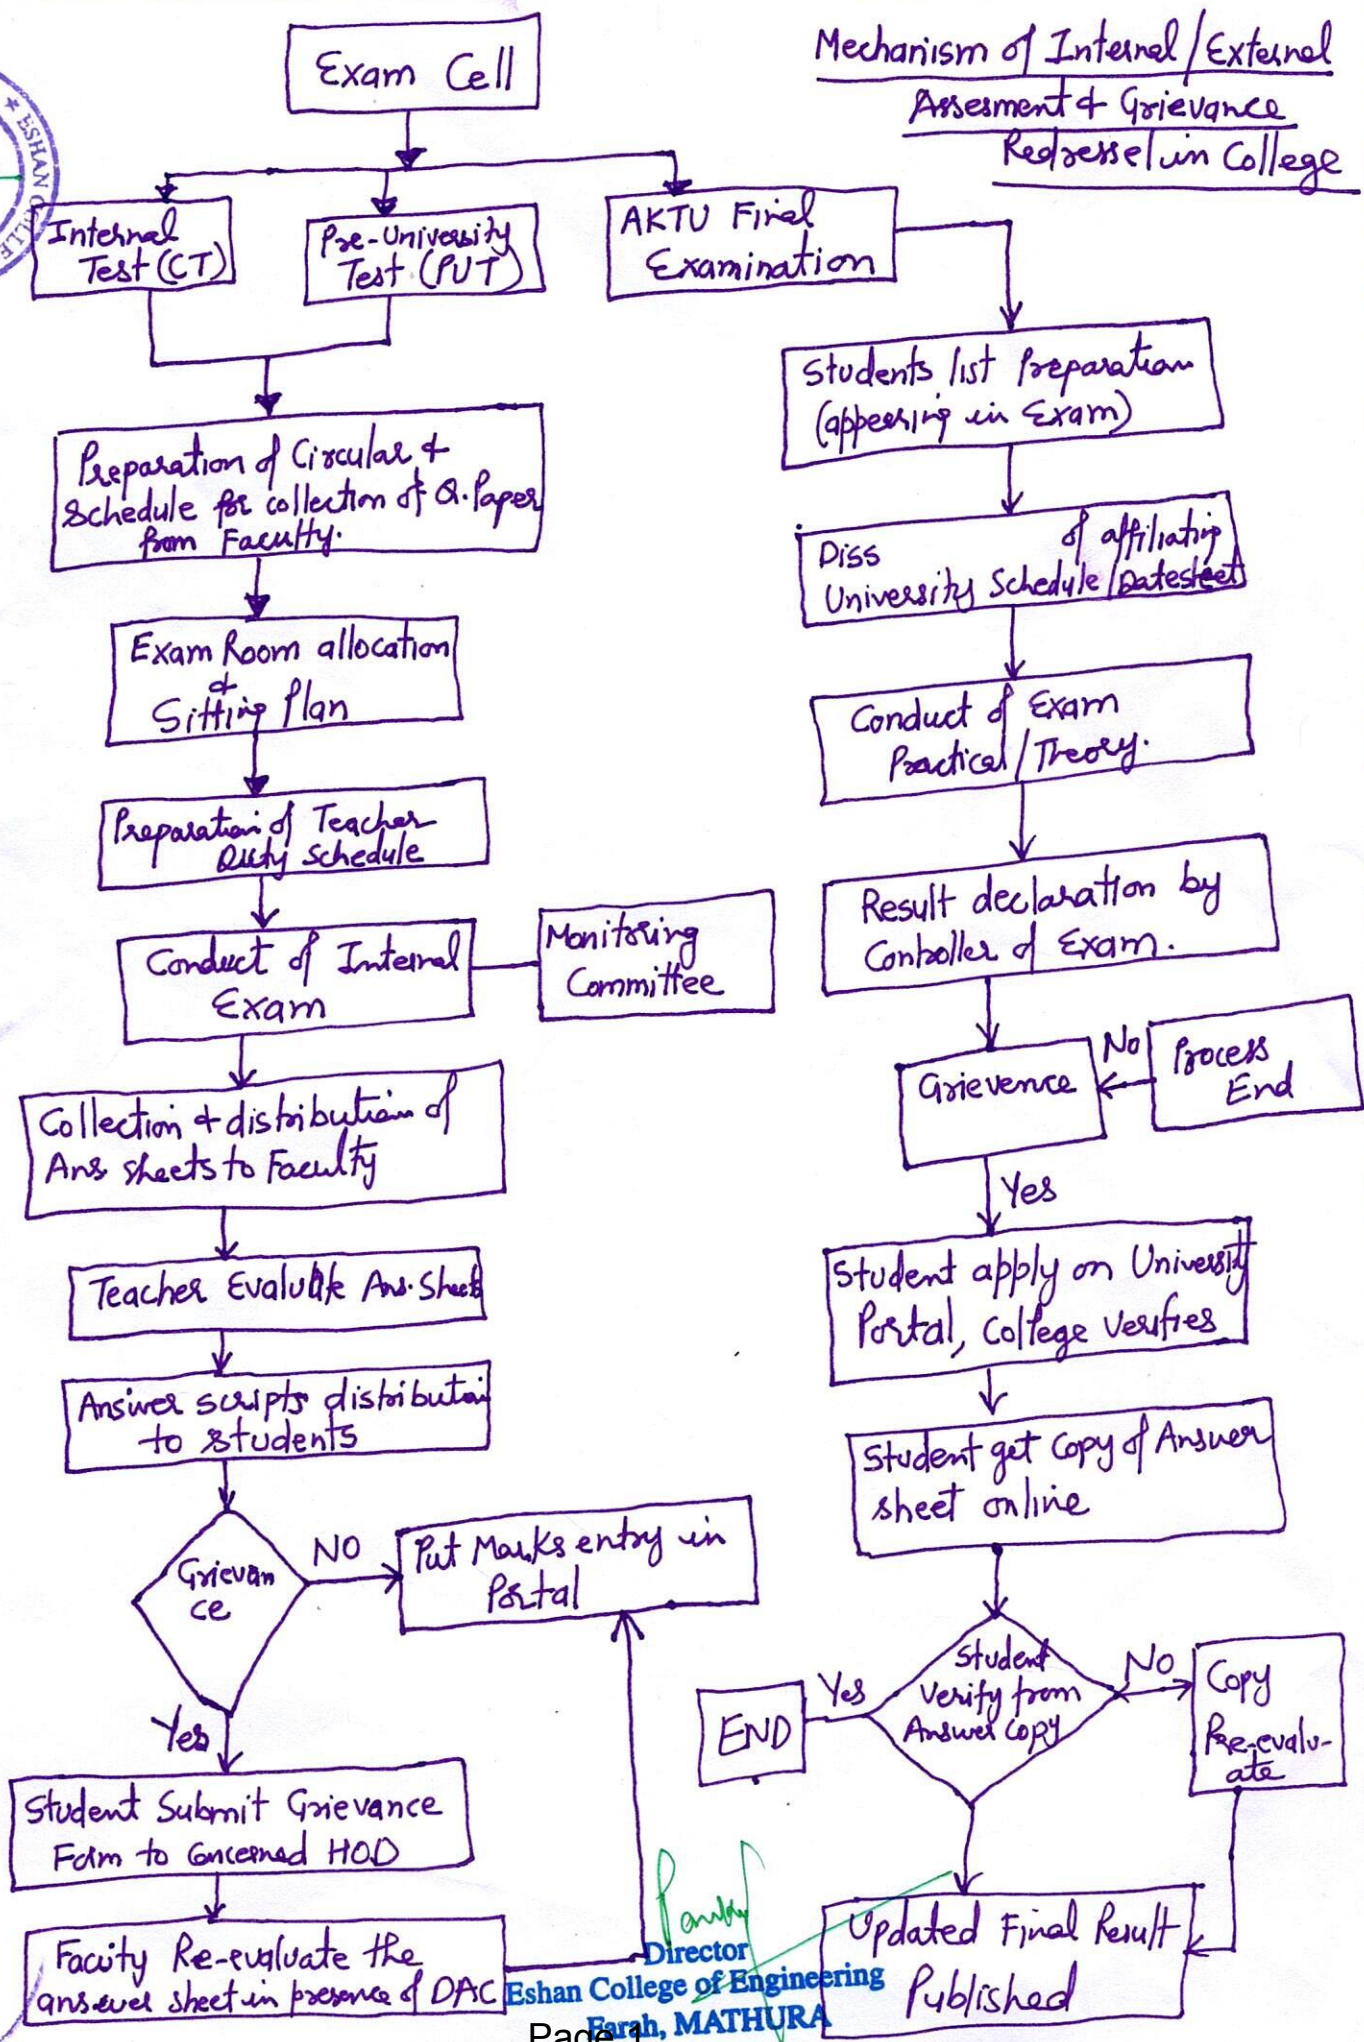 Exam Cell
Mechanism of Internal/External
Assesment & Grievance
Redressel in College
ESHAN
Internal
Test (CT)
Pre-University
Test (PUT)
AKTU Final
Examination
Preparation of Circular &
Schedule for collection of Q. Paper
from Faculty.
Exam Room allocation
&
Sitting Plan
Preparation of Teacher
Duty Schedule
Conduct of Internal
Exam
Monitoring
Committee
Collection & distribution of
Ans. sheets to Faculty
Teacher Evaluate Ans. Sheets
Answer scripts distribution
to students
Grievan
ce
NO
Put Marks entry in
Portal
Yes
Student Submit Grievance
Form to Concerned HOD
Faculty Re-evaluate the
answer sheet in presence of DAC
Students list Preparation
(appeering in Exam)
Diss of affiliating
University Schedule/Datesheet
Conduct of Exam
Practical/Theory.
Result declaration by
Controller of Exam.
Grievence
No
Process
End
Yes
Student apply on University
Portal, College verifies
Student get Copy of Answer
sheet online
Student
Verify from
Answer Copy
Yes
END
No
Copy
Re-evalu-
ate
Updated Final Result
Published
Director
Eshan College of Engineering
Farah, MATHURA
Page 1